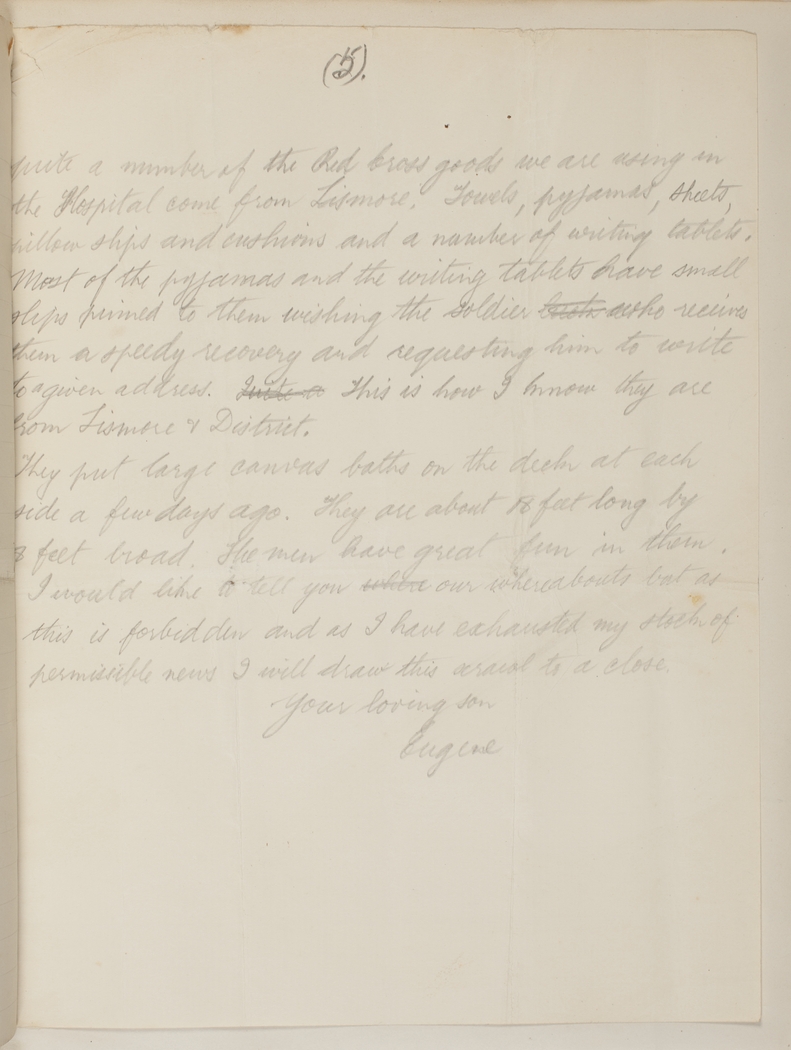 (5).
Quite a number of the Red Cross goods we are using in
the Hospital come from Lismore. Towels, pyjamas, sheets,
pillow slips and cushions and a number of writing tablets.
Most of the pyjamas and the writing tablets have small
slips pinned to them wishing the soldier who receives
them a speedy recovery and requesting him to write
to a given address. Quite a This is how I know they are
from Lismore & District.
They put large canvas baths on the deck at each
side a few days ago. They are about 18 feet long by
8 feet broad. The men have great fun in them.
I would like to tell you where our whereabouts but as
this is forbidden and as I have exhausted my stock of
permissible news I will draw this scrawl to a close.
Your loving son
Eugene